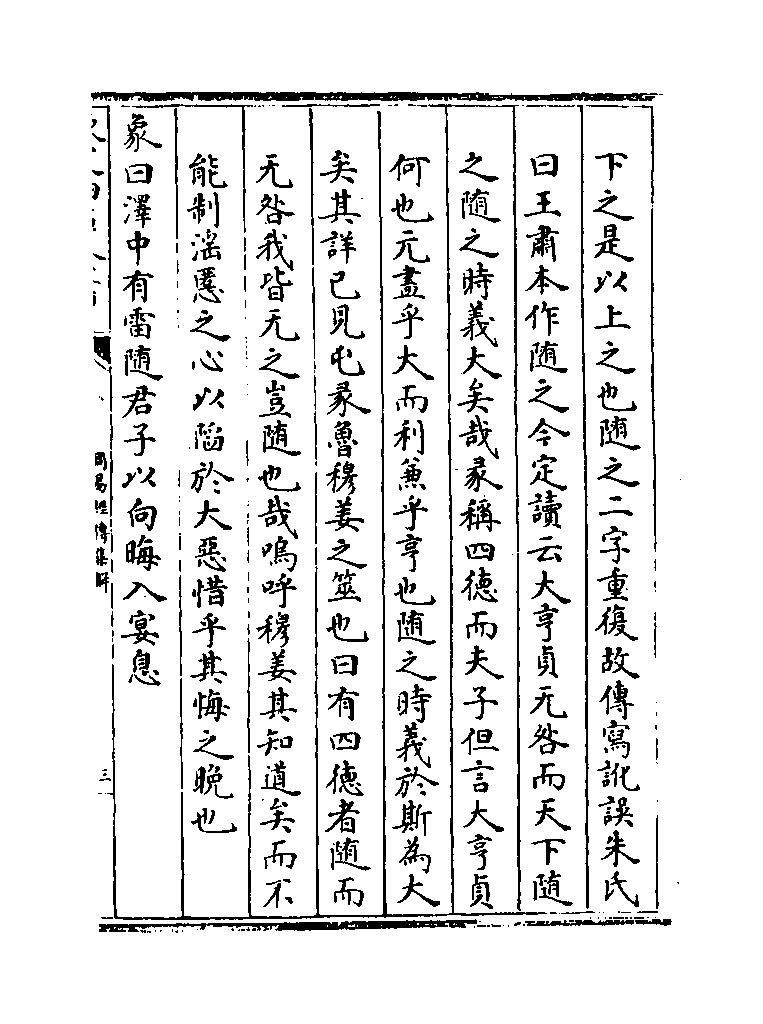 下之是以上之也随之二字重復故傳寫訛誤朱氏
曰王肅本作随之今定讀云大亨貞无咎而天下隨
之随之時義大矣哉彖稱四德而夫子但言大亨貞
何也元盡乎大而利兼乎亨也随之時義於斯為大
矣其詳已見屯彖魯穆姜之筮也曰有四德者隨而
无咎我皆无之豈随也哉嗚呼穆姜其知道矣而不
能制淫慝之心以陷於大惡惜乎其悔之晚也
象曰澤中有雷随君子以向晦入宴息
周易經傳集解
三